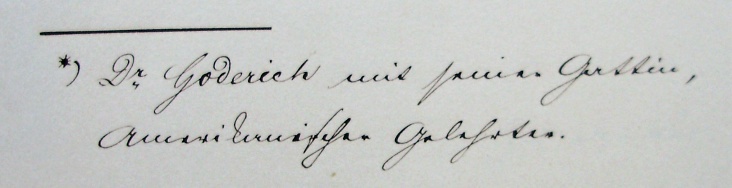 *) Dr Goderich mit seiner Gattin,
Amerikanischer Gelehrter.